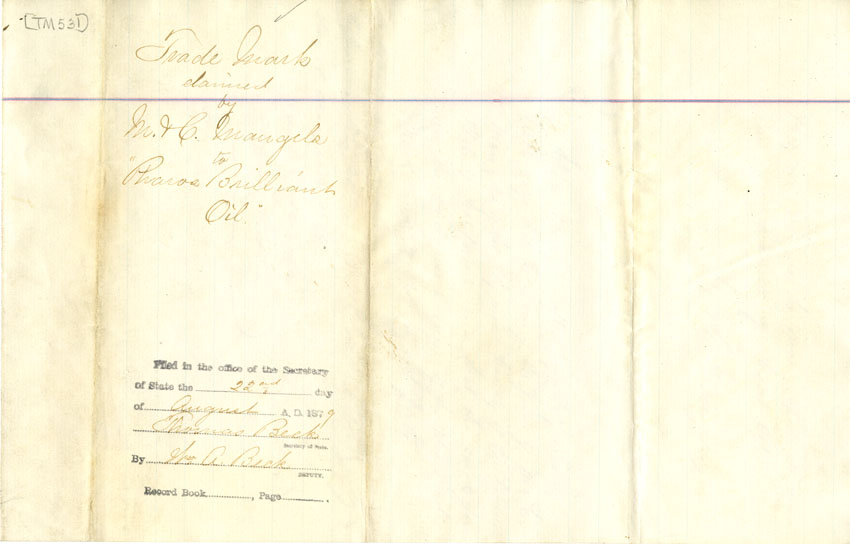 [TM531]
Trade Mark
claimed
by
M. & C. Mangels
to
"Pharos Brilliant
Oil."
Filed in the office of the Secretary
of State the 22nd day
of August A. D. 1879
Thomas Beck
Secretary of State.
By Wm A. Beck
DEPUTY.
Record Book, Page.